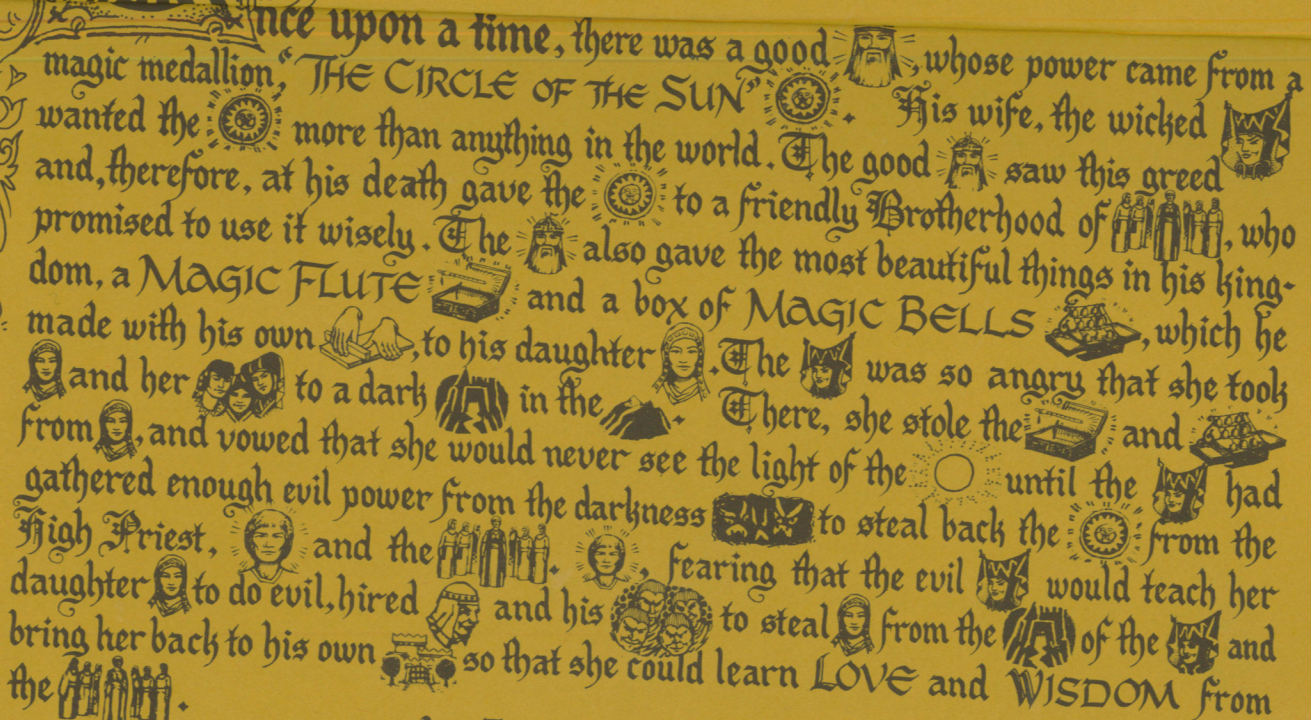 nce upon a time, there was a good , whose power came from a
magic medallion, "THE CIRCLE OF THE SUN" . His wife, the wicked
wanted the more than anything in the world. The good saw this greed
and, therefore, at his death gave the to a friendly Brotherhood of , who
promised to use it wisely. The also gave the most beautiful things in his king-
dom, a MAGIC FLUTE and a box of MAGIC BELLS , which he
made with his own , to his daughter . The was so angry that she took
and her to a dark in the . There, she stole the and
from , and vowed that she would never see the light of the until the had
gathered enough evil power from the darkness to steal back the from the
High Priest, and the . , fearing that the evil would teach her
daughter to do evil, hired and his to steal from the of the and
bring her back to his own so that she could learn LOVE and WISDOM from
the .